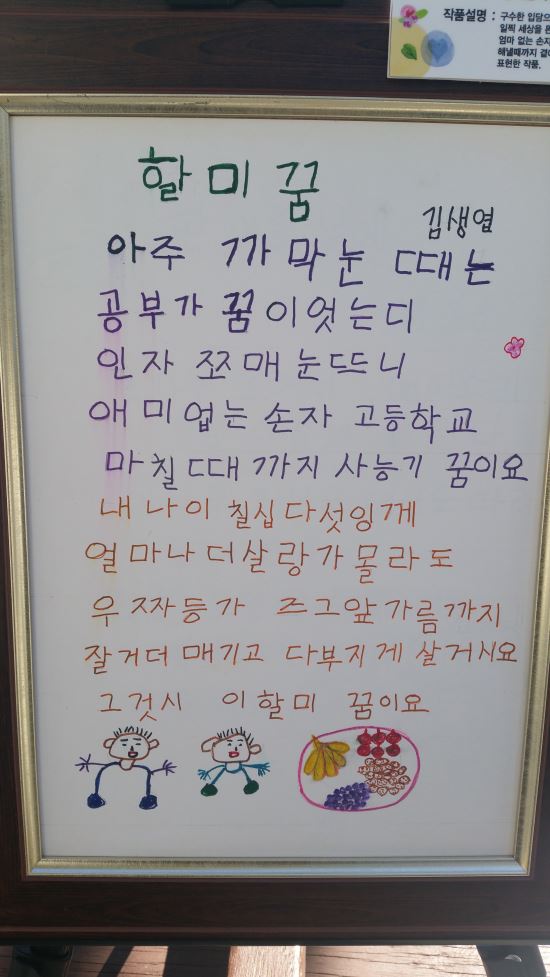 작품설명 : 구수한 입담으
일찍 세상을
엄마 없는 손자
해낼때까지
표현한 작품.
할미 꿈
김생엽
아주 까막눈 때는
공부가 꿈이엇는디
인자 쪼매 눈뜨니
애미 업는 손자 고등학교
마칠 때까지 사능기 꿈이요
내 나이 칠십다섯잉게
얼마나 더살랑가 몰라도
우짜등가 즈그앞가름까지
잘거더 매기고 다부지게 살거시요
그것시 이할미 꿈이요